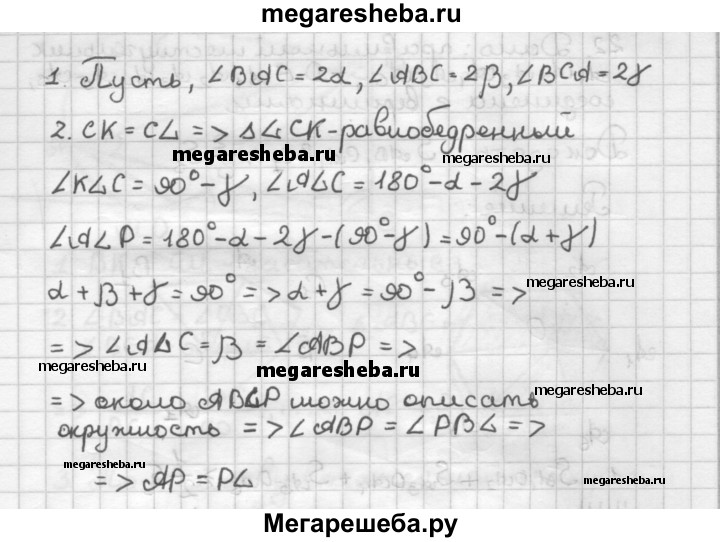 megaresheba.ru
1. Пусть, ∠BAC = 2α, ∠ABC = 2β, ∠BCA = 2γ
2. CK = CL => ΔLCK - равнобедренный
megaresheba.ru megaresheba.ru
∠KLC = 90° - γ, ∠ALC = 180° - α - 2γ
∠ALP = 180° - α - 2γ - (90° - γ) = 90° - (α + γ)
megaresheba.ru
α + β + γ = 90° => α + γ = 90° - β =>
=> ∠ALC = β = ∠ABP =>
megaresheba.ru megaresheba.ru
megaresheba.ru
=> около ABLP можно описать
окружность => ∠ABP = ∠PBL =>
megaresheba.ru
=> AP = PL
megaresheba.ru
Мегарешеба.ру